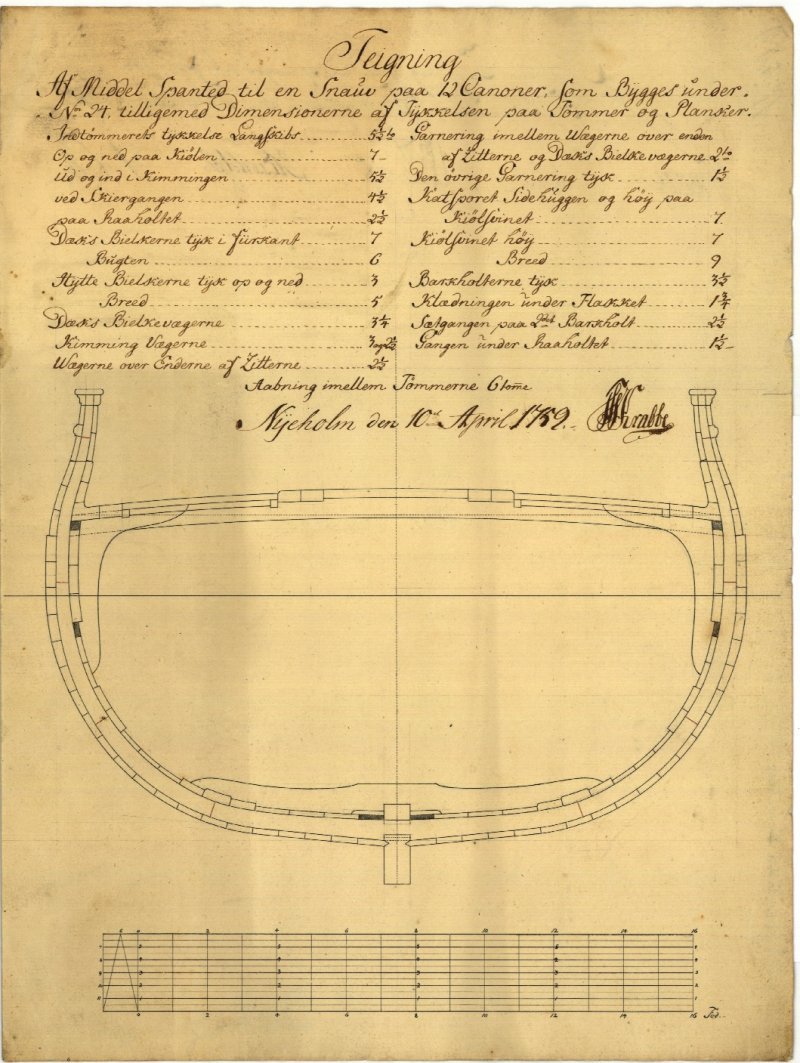 Teigning
Af Middel Spanted til en Snauv paa 12 Canoner, som Bÿgges under.
No 24. tilligemed Dimensionerne af Tÿkkelsen paa Tömmer og Planker.
Indtömmerets tÿkkelse Langskibs
Op og ned paa Kiölen 7
ud og ind i Kimmingen 5½
ved Skiergangen 4½
paa Raaholtet 2½
Dæks Bielkerne tÿk i fürkant 7
Bugten 6
Hÿtte Bielkerne tÿk op og ned 3
Breed 5
Dæks Bielkevægerne 3¼
Kimming Vægerne 3 og 2½
Vægerne over Enderne af Zitterne 2½
Garnering imellem Wægerne over enden
af Zitterne og Dæks Bielkevægerne 2
Den övrige Garnering tÿk 1½
Katsporet Sidehuggen og höÿ paa
Kiölsvinet 7.
Kiölsvinet höÿ 7
Breed 9
Barkholterne tÿk 3½
Klædningen under Flakket 1¾
Sætgangen paa 2det Barkholt 2½
Gangen under Raaholtet 1½
Aabning imellem Tömmerne 6 tome
Nÿeholm den 10de April 1759.
Krabbe
6 0 2 4 6 8 10 12 14 16
0 2 4 6 8 10 12 14 16 Fod.